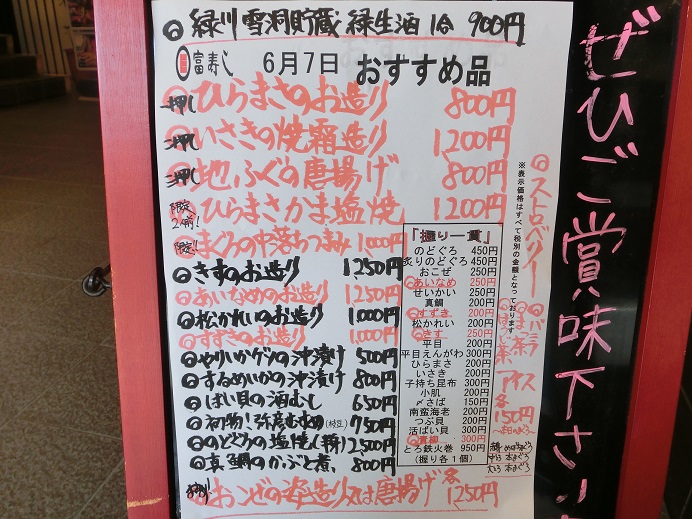 緑川 雪洞貯蔵 緑生酒 1合 900円
富寿し 6月7日 おすすめ品
一押し ひらまさのお造り 800円
二押し いさきの焼霜造り 1,200円
三押し 地ふぐの唐揚げ 800円
限定2前! ひらまさかま塩焼 1,200円
限定!! まぐろの中落ちつまみ 1,000円
きすのお造り 1,250円
あいなめのお造り 1,250円
松かれいのお造り 1,000円
すずきのお造り 1,000円
やりいかゲソの沖漬け 500円
するめいかの沖漬け 800円
ばい貝の酒むし 650円
初物!弥彦むすめ(枝豆) 750円
のどぐろの塩焼し 2,500円
真鯛のかぶと煮 800円
おこぜの姿造り又は唐揚げ 各1,250円
「握り一貫」
のどぐろ 450円
炙りのどぐろ 450円
おこぜ 250円
あいなめ 250円
せいかい 250円
真鯛 200円
すずき 200円
松かれい 200円
きす 200円
平目 200円
平目えんがわ 300円
ひらまさ 200円
いさき 200円
子持ち昆布 300円
小肌 200円
〆さば 150円
南蛮海老 200円
つぶ貝 200円
活ばい貝 300円
青柳 300円
とろ鉄火巻 950円
(握り各1個)
※表示価格はすべて税別の金額となっております
ストロベリー
バニラ
まっ茶
ほうじ茶
アイス
各150円
ぜひご賞味下さい